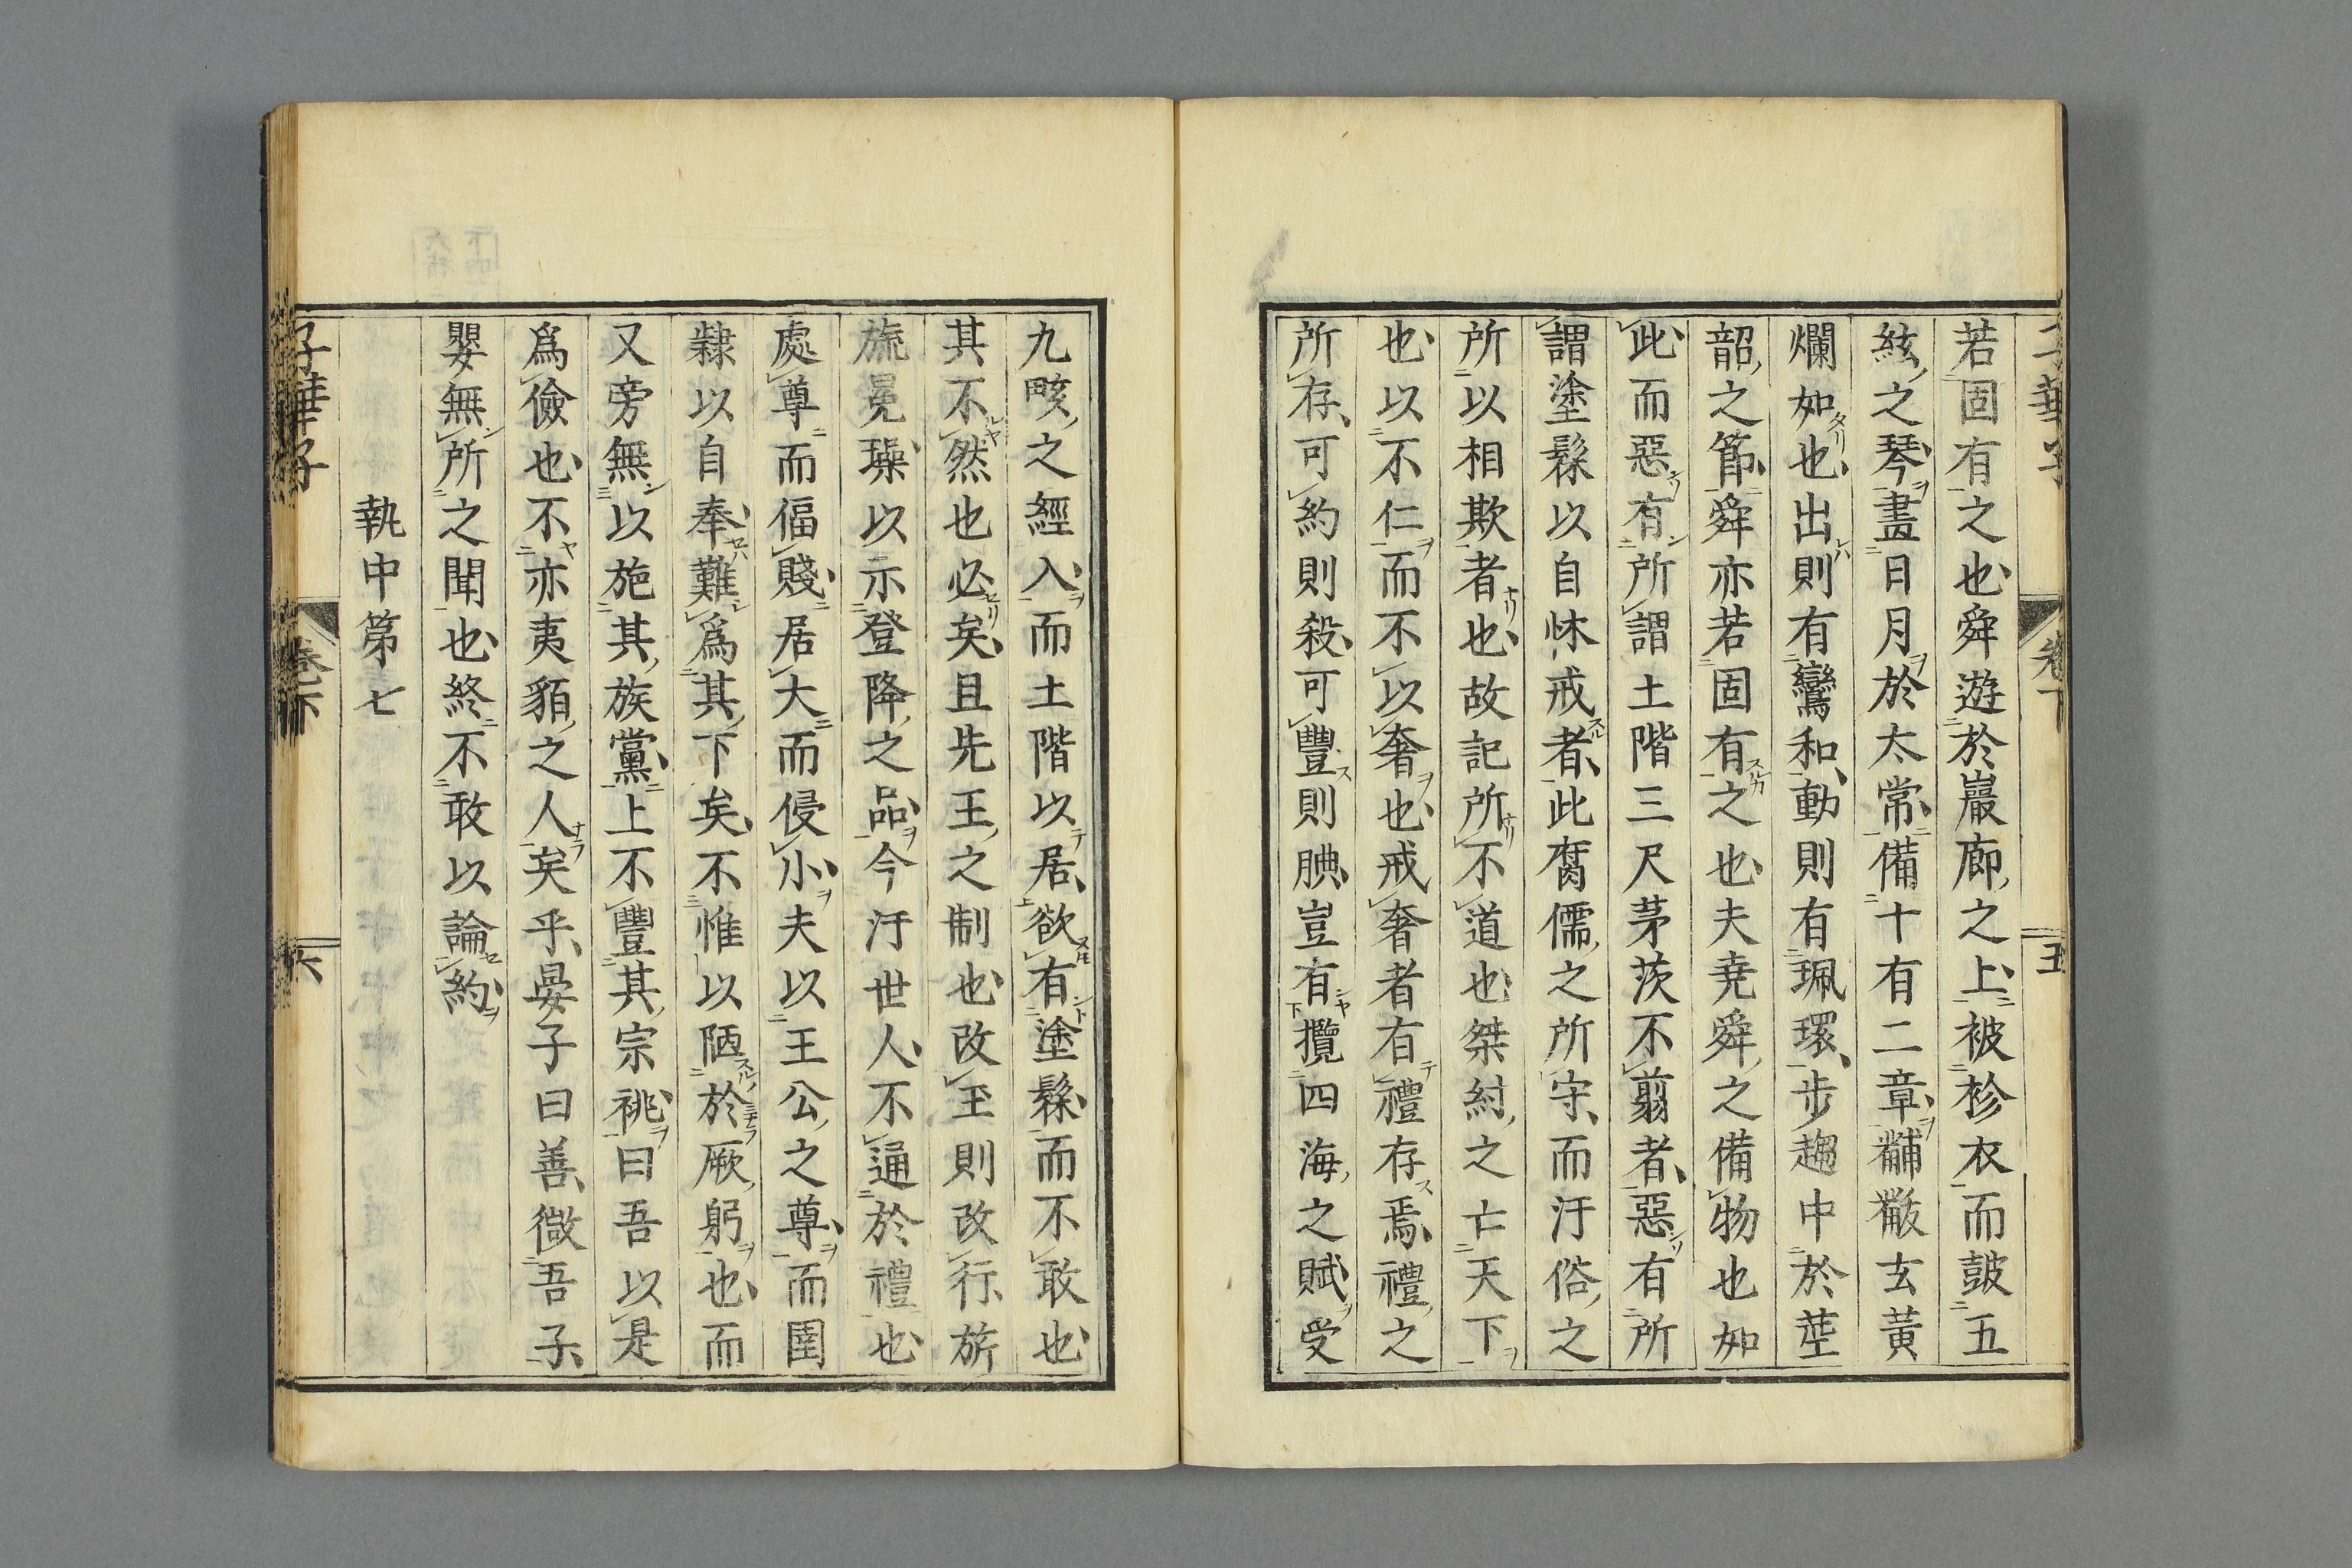 子華子 卷下 五
若固有之也舜遊於巖廊之上被袗衣而皷五
絃之琴畫日月於太常備十有二章黼黻玄黃
爛如也出則有鸞和動則有珮環步趨中於莖
韶之節舜亦若固有之也夫堯舜之備物也如
此而惡有所謂土階三尺茅茨不翦者惡有所
謂塗髹以自怵戒者此腐儒之所守而汙俗之
所以相欺者也故記所不道也桀紂之亡天下
也以不仁而不以奢也戒奢者有禮存焉禮之
所存可約則殺可豐則腆豈有攬四海之賦受
九畡之經入而土階以居欲有塗髹而不敢也
其不然也必矣且先王之制也改玉則改行旂
旒冕璪以示登降之品今汙世人不通於禮也
處尊而偪賤居大而侵小夫以王公之尊而圉
隸以自奉難爲其下矣不惟以陋於厥躬也而
又旁無以施其族黨上不豐其宗祧曰吾以是
爲儉也不亦夷貊之人矣乎晏子曰善微吾子
嬰無所之聞也終不敢以論約
執中第七
子華子 卷下 六